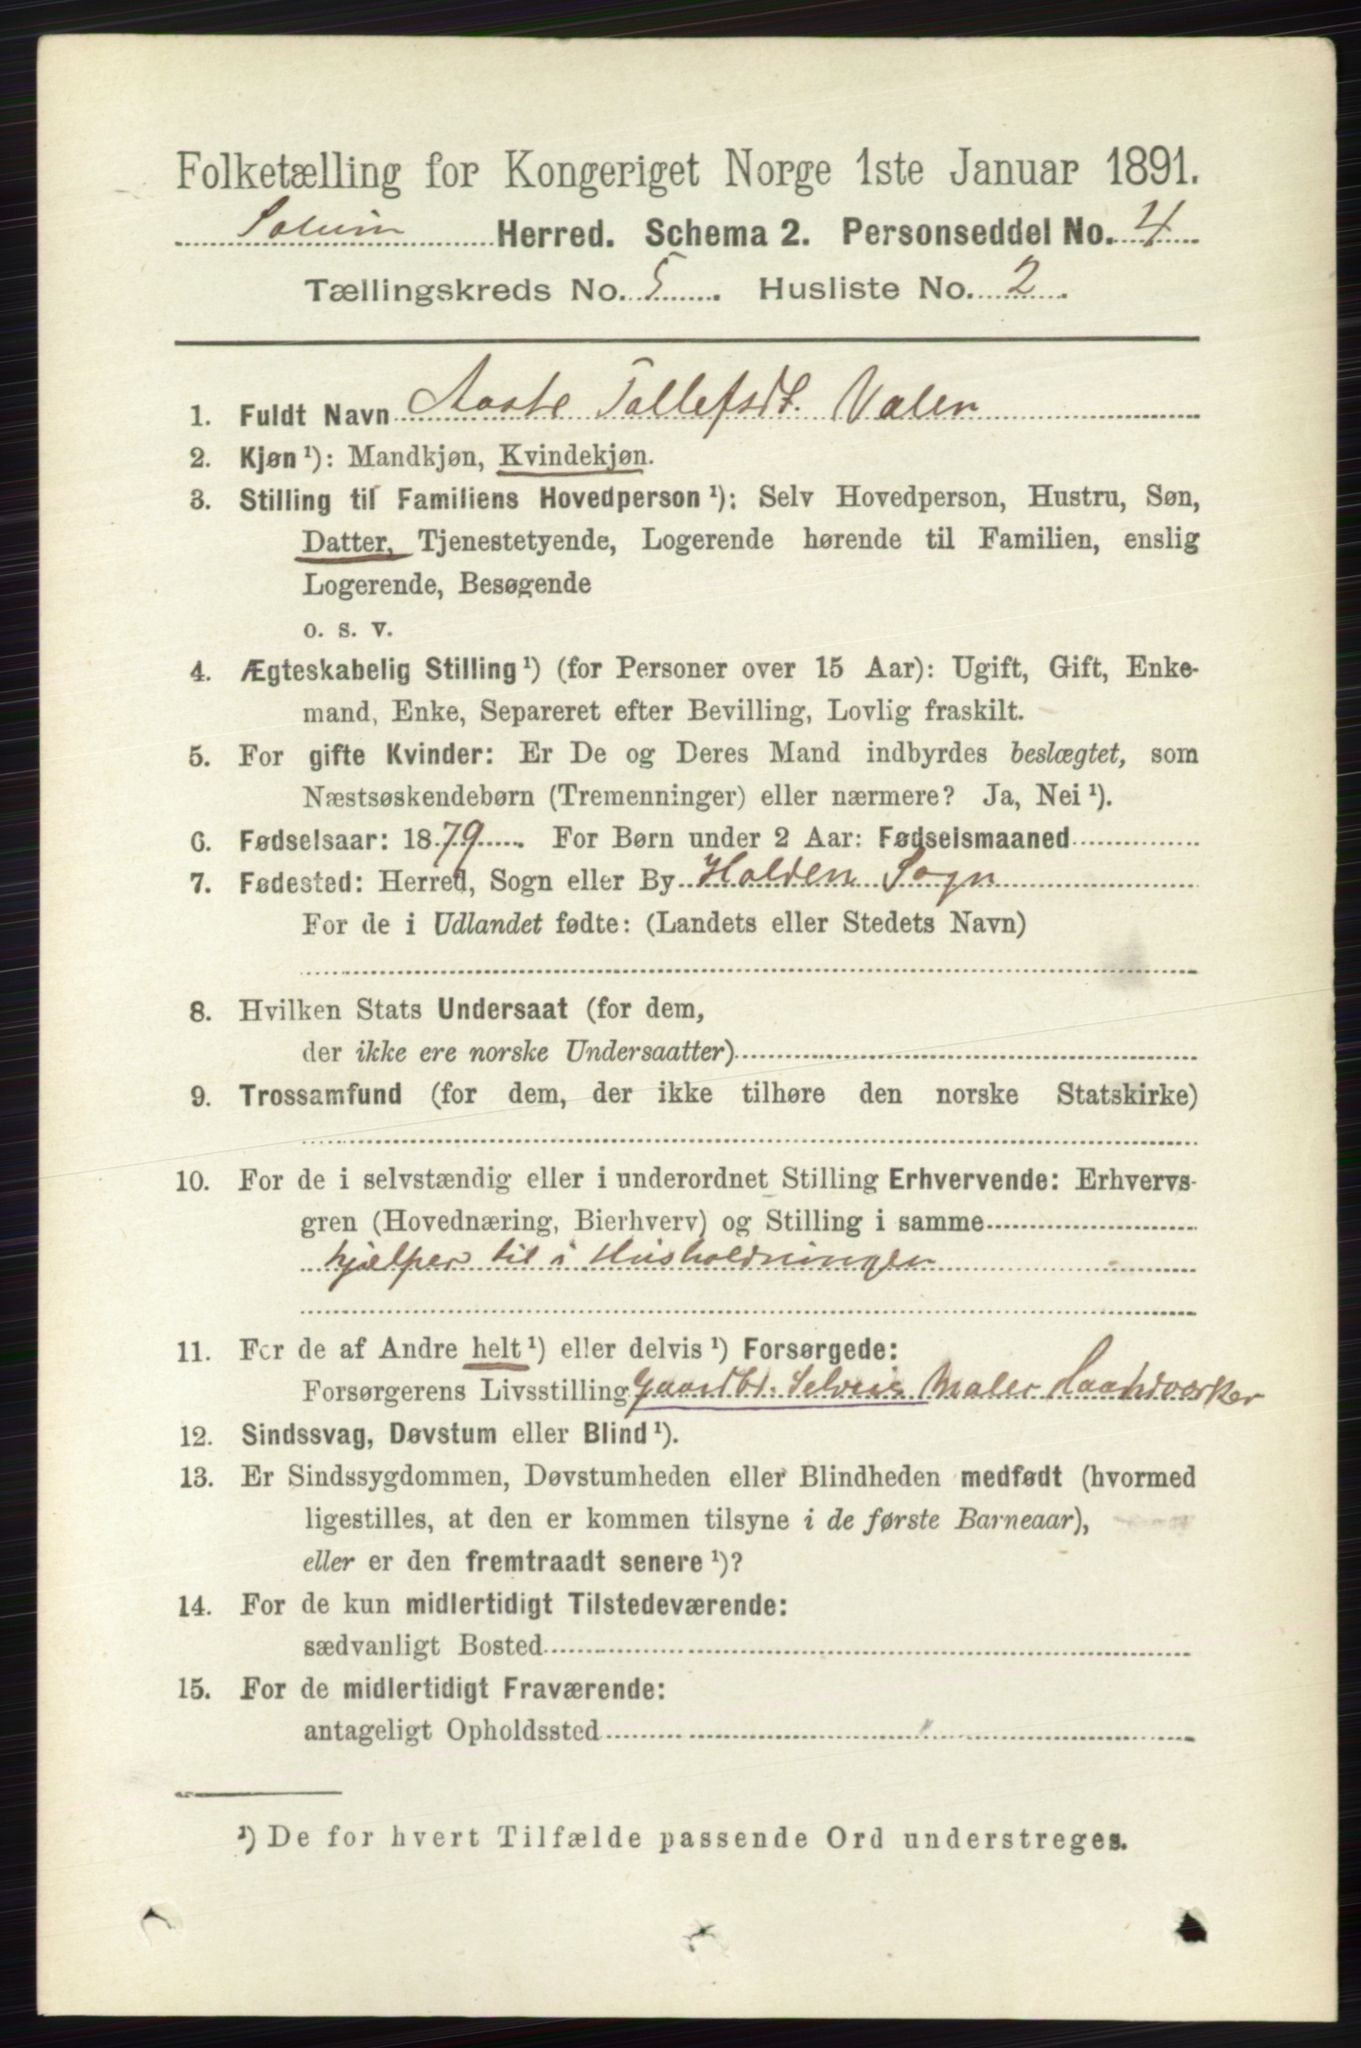 Folketælling for Kongeriget Norge 1ste Januar 1891.
Solum Herred. Schema 2. Personseddel No. 4
Tællingskreds No. 5. Husliste No. 2.
1. Fuldt Navn Aaste Tollefsdt. Valen
2. Kjøn¹): Mandkjøn, Kvindekjøn.
3. Stilling til Familiens Hovedperson¹): Selv Hovedperson, Hustru, Søn,
Datter, Tjenestetyende, Logerende hørende til Familien, enslig
Logerende, Besøgende
o. s. v.
4. Ægteskabelig Stilling¹) (for Personer over 15 Aar): Ugift, Gift, Enke-
mand, Enke, Separeret efter Bevilling, Lovlig fraskilt.
5. For gifte Kvinder: Er De og Deres Mand indbyrdes beslægtet, som
Næstsøskendebørn (Tremenninger) eller nærmere? Ja, Nei¹).
6. Fødselsaar: 1879. For Børn under 2 Aar: Fødselsmaaned
7. Fødested: Herred, Sogn eller By Holden Sogn
For de i Udlandet fødte: (Landets eller Stedets Navn)
8. Hvilken Stats Undersaat (for dem,
der ikke ere norske Undersaatter)
9. Trossamfund (for dem, der ikke tilhøre den norske Statskirke)
10. For de i selvstændig eller i underordnet Stilling Erhvervende: Erhvervs-
gren (Hovednæring, Bierhverv) og Stilling i samme
hjælper til i Husholdningen
11. For de af Andre helt¹) eller delvis¹) Forsørgede:
Forsørgerens Livsstilling Gaardbr. Selveier Maler Haandværker
12. Sindssvag, Døvstum eller Blind¹).
13. Er Sindssygdommen, Døvstumheden eller Blindheden medfødt (hvormed
ligestilles, at den er kommen tilsyne i de første Barneaar),
eller er den fremtraadt senere¹)?
14. For de kun midlertidigt Tilstedeværende:
sædvanligt Bosted
15. For de midlertidigt Fraværende:
antageligt Opholdssted
¹) De for hvert Tilfælde passende Ord understreges.